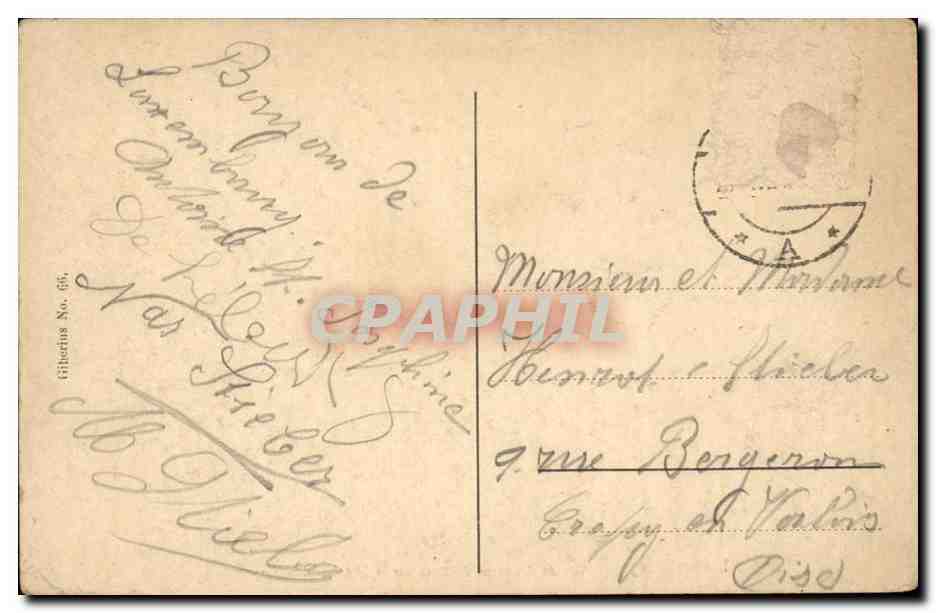 Bonjour de
Luxembourg.
Antoine et Josephine
De
Nar Stieber
M Stieber
Giberius No. 66.
A
Monsieur et Madame
Henrot Stieber
9 rue Bergeron
Crepy en Valois
Oise
CPAPHIL